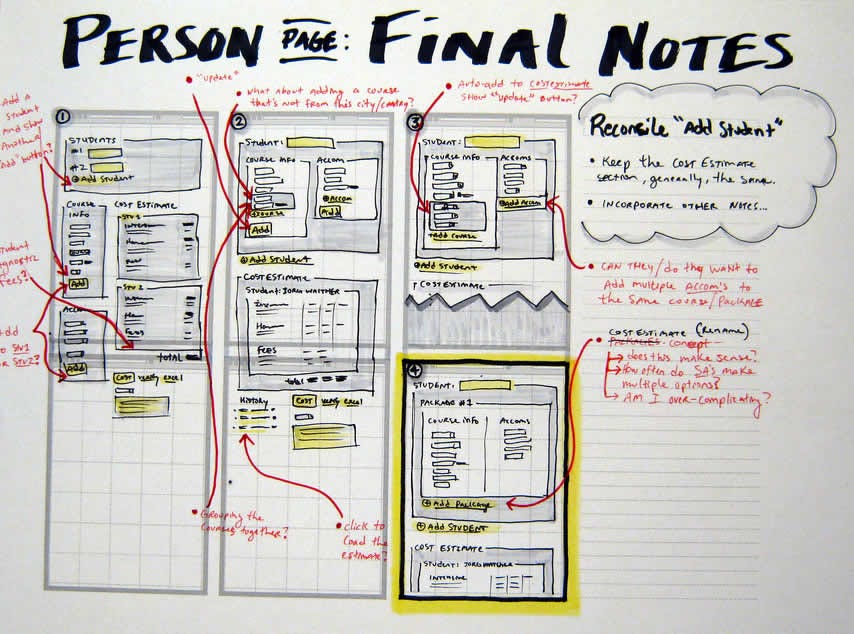 PERSON PAGE: FINAL NOTES
"update"
what about adding a course
that's not from this city/country?
Auto-add to cost estimate
show "update" button?
Add a
student
and show
Another
"Add" button?
Student
Fees?
Add
to Stu1
or Stu2?
①
STUDENTS
#1
#2
⊕ Add Student
COURSE
INFO
Add
ACCOM
Add
COST ESTIMATE
STU 1
Intensive
Home
Fees
STU 2
Home
Fees
TOTAL
COST verify excel
②
Student:
COURSE INFO
⊕COURSE
Add
ACCOM
⊕ACCOM
Add
⊕ Add STUDENT
COST ESTIMATE
Student: JORG WATCHER
Home
FEES
total
HISTORY
COST verify excel
Grouping the
courses together?
click to
load the
estimate?
③
STUDENT:
COURSE INFO
+ADD COURSE
ACCOMS
⊕Add Accom
⊕Add STUDENT
COST ESTIMATE
④
STUDENT:
PACKAGE #1
COURSE info
ACCOMS
⊕ Add PACKAGE
⊕ Add STUDENT
COST ESTIMATE
STUDENT: JORG WATCHER
INTENSIVE
Reconcile "Add Student"
• Keep the COST ESTIMATE
section, generally, the same.
• INCORPORATE OTHER NOTES...
• CAN THEY/do they WANT to
Add multiple ACCOM's to
the same course/PACKAGE
COST ESTIMATE (Rename)
PACKAGES concept
does this make sense?
How often do SA's make
multiple options?
AM I over-complicating?